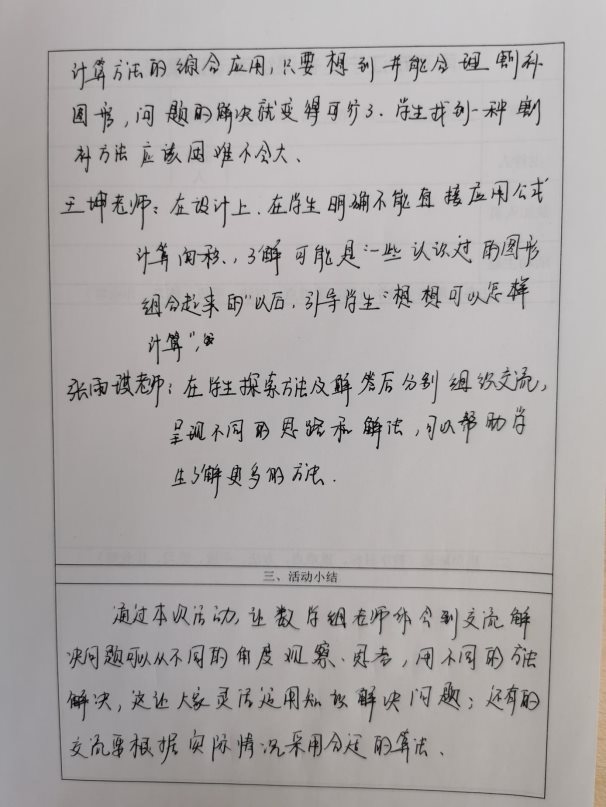 计算方法的综合应用，只要想到并能合理割补
图形，问题的解决就变得可行了．学生找到一种割
补方法应该困难不会大、
王坤老师：在设计上．在学生明确不能直接应用公式
计算面积．，了解可能是“一些认识过的图形
组合起来的”以后．引导学生“想想可以怎样
计算”，
张雨琪老师：在学生探索方法及解答后分别组织交流，
呈现不同的思路和解法，可以帮助学
生了解更多的方法．
三、活动小结
通过本次活动，让数学组老师体会到交流解
决问题可以从不同的角度观察、思考，用不同的方法
解决，这让大家灵活运用知识解决问题；还有的
交流要根据实际情况采用合适的算法．